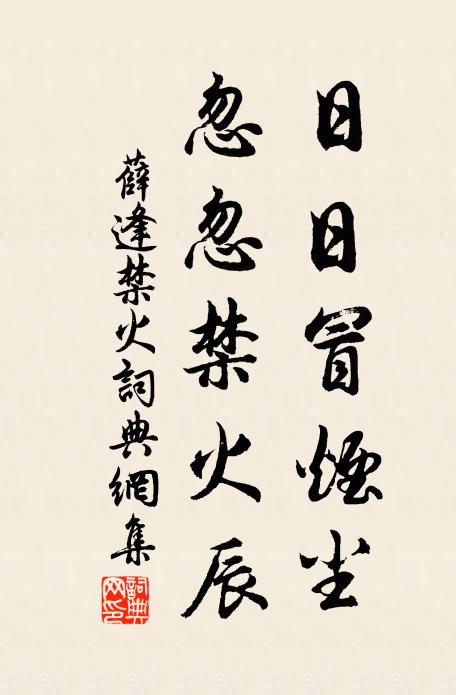 日日冒煙尘
忽忽禁火辰
薛逢禁火詞典網集
詞典网印